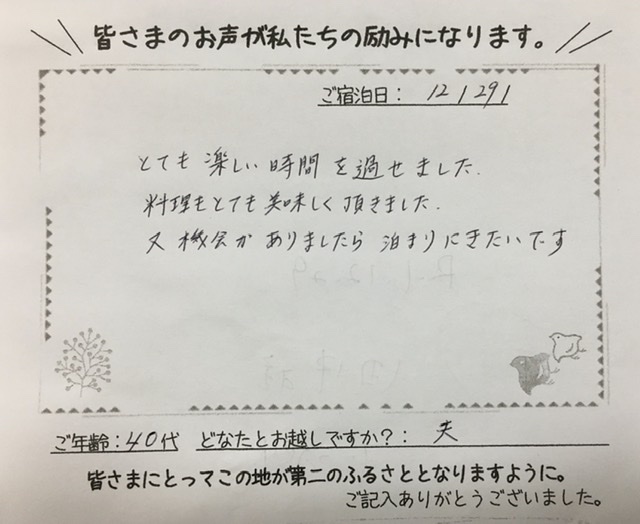 皆さまのお声が私たちの励みになります。
ご宿泊日: 12/29/
とても楽しい時間を過せました.
料理もとても美味しく頂きました.
又機会がありましたら泊まりにきたいです
ご年齢:40代 どなたとお越しですか?: 夫
皆さまにとってこの地が第二のふるさととなりますように。
ご記入ありがとうございました。